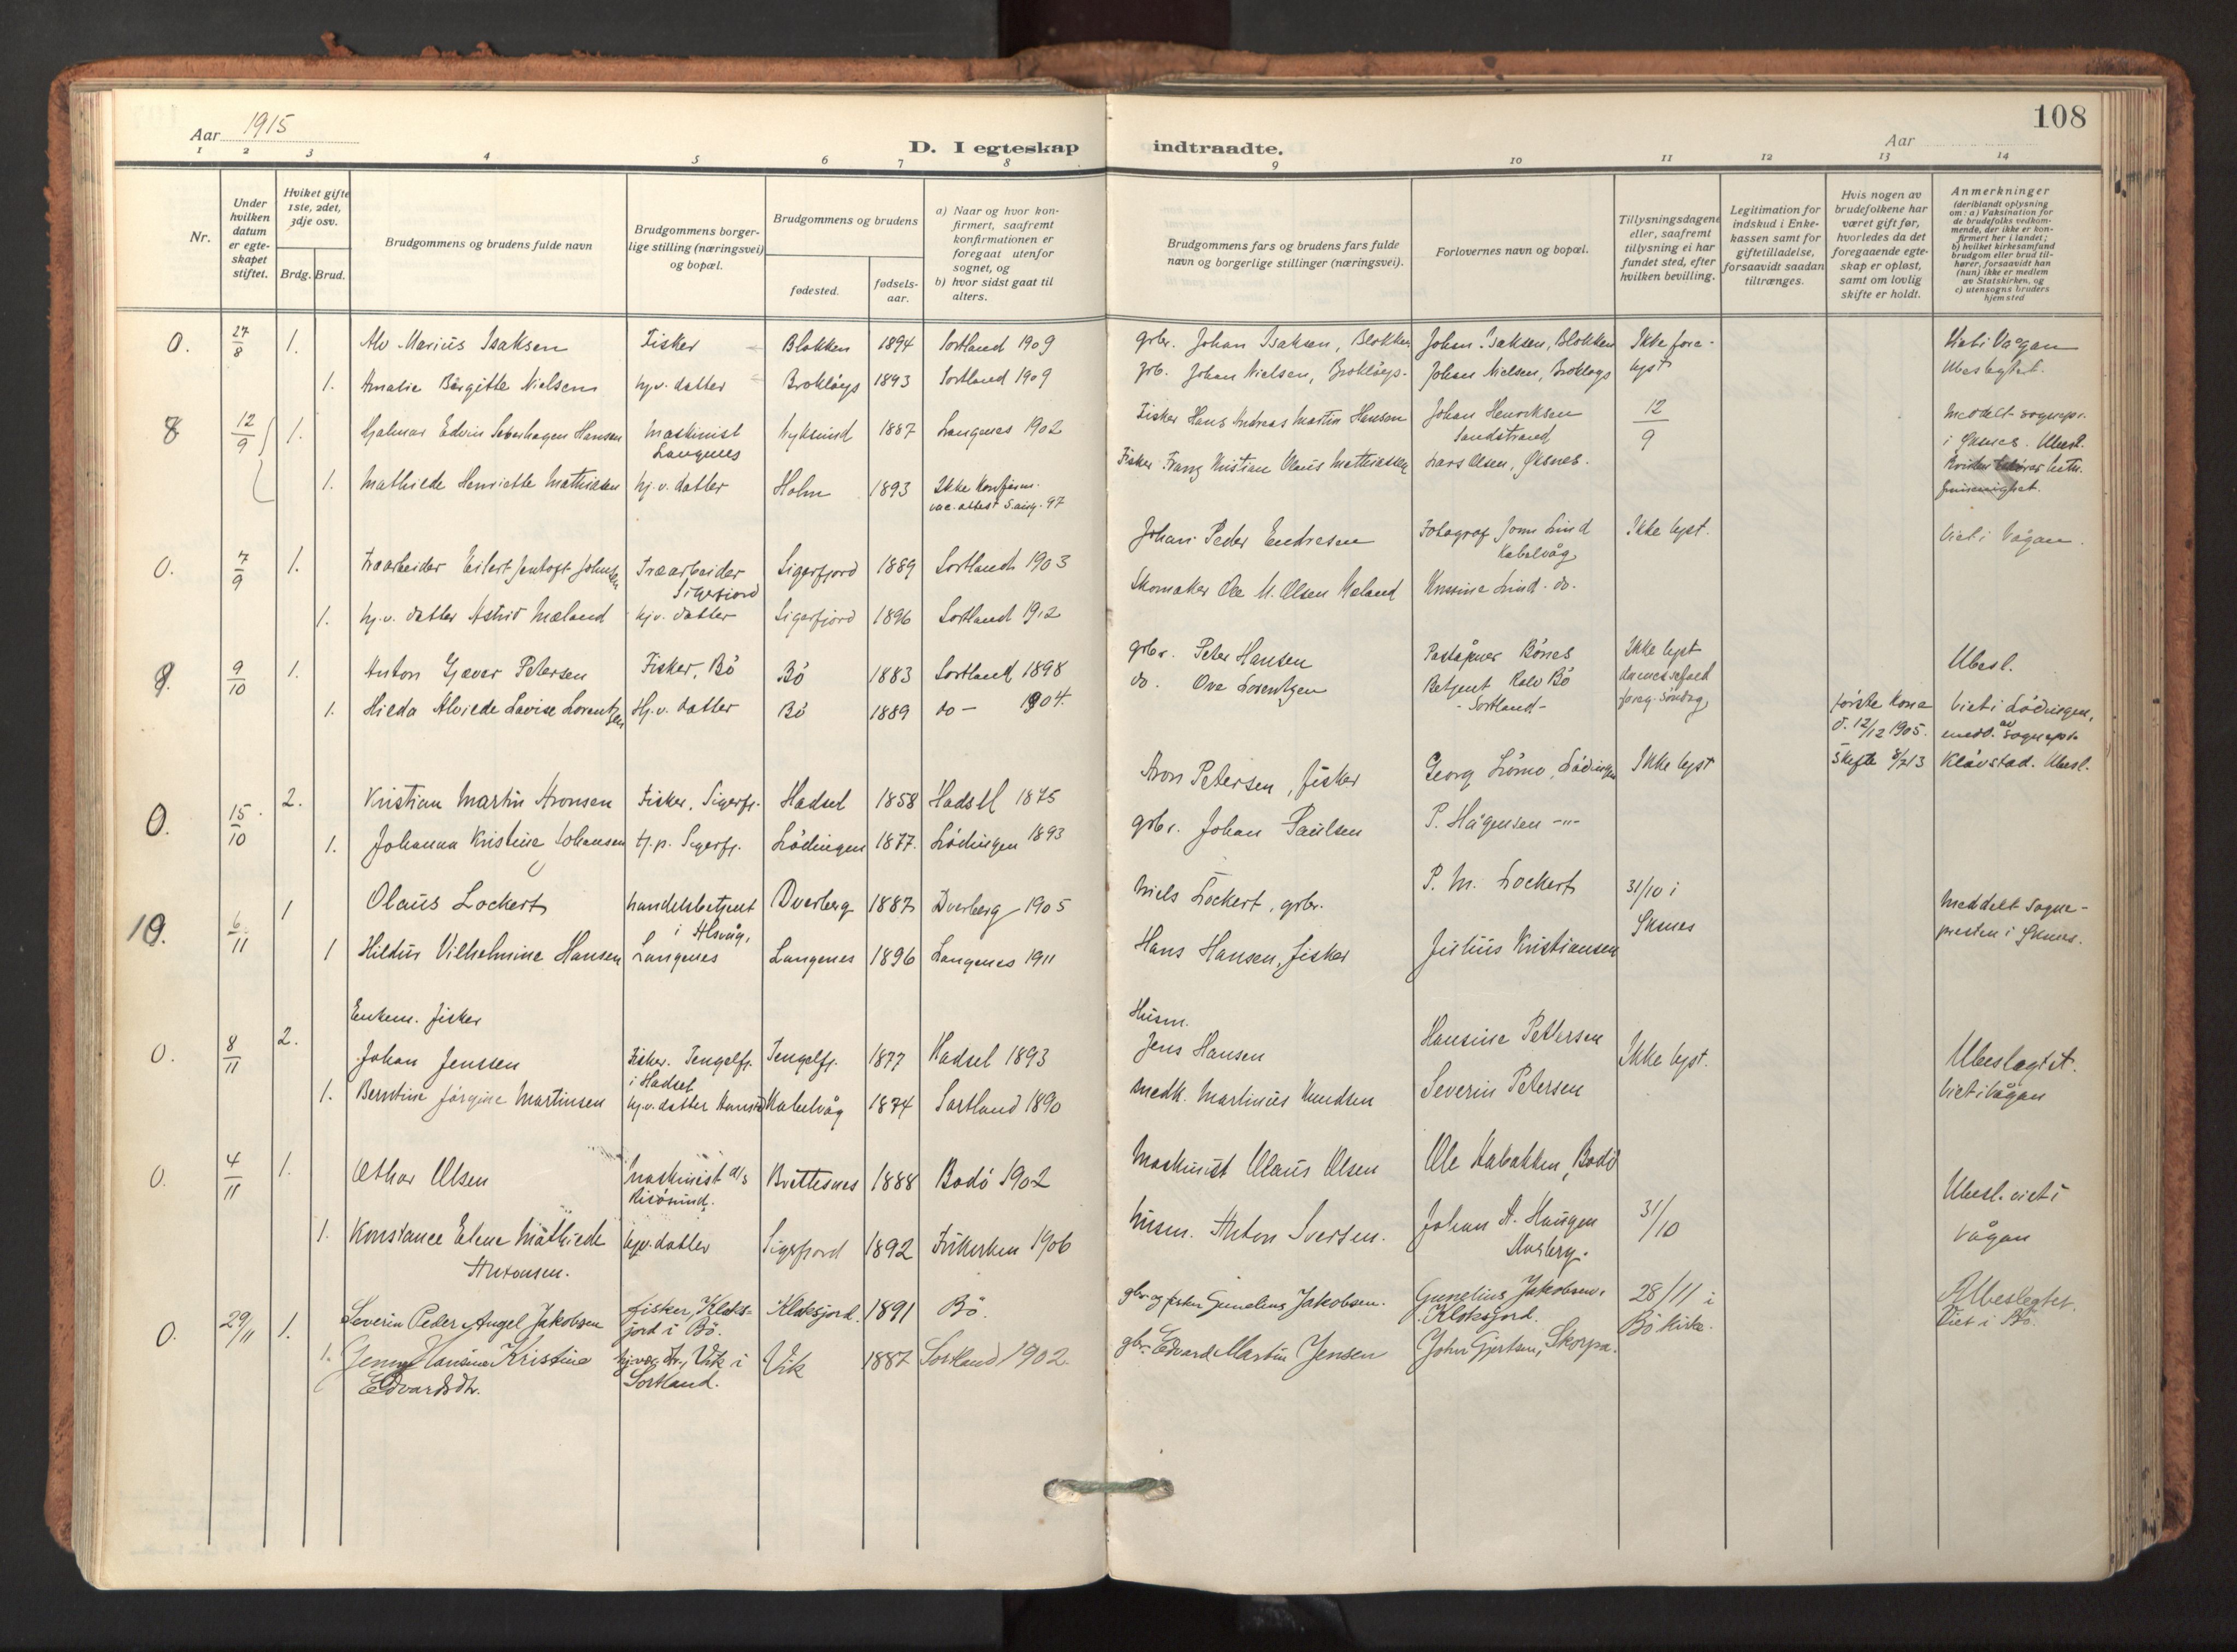 108
Aar 1915
D. I egteskap indtraadte.
Aar
1 2 3 4 5 6 7 8 9 10 11 12 13 14
Nr.
Under hvilken datum er egte-skapet stiftet.
Hviket gifte 1ste, 2det, 3dje osv.
Brdg. Brud.
Brudgommens og brudens fulde navn
Brudgommens borger-lige stilling (næringsvei) og bopæl.
Brudgommens og brudens
fødested.
fødsels-aar.
a) Naar og hvor kon-firmert, saafremt konfirmationen er foregaat utenfor sognet, og
b) hvor sidst gaat til alters.
Brudgommens fars og brudens fars fulde navn og borgerlige stillinger (næringsvei).
Forlovernes navn og bopæl.
Tillysningsdagene eller, saafremt tillysning ei har fundet sted, efter hvilken bevilling.
Legitimation for indskud i Enke-kassen samt for giftetilladelse, forsaavidt saadan tiltrænges.
Hvis nogen av brudefolkene har været gift før, hvorledes da det foregaaende egte-skap er opløst, samt om lovlig skifte er holdt.
Anmerkninger (deriblandt oplysning om: a) Vaksination for de brudefolks vedkom-mende, der ikke er kon-firmert her i landet; b) hvilket kirkesamfund brudgom eller brud til-hører, forsaavidt han (hun) ikke er medlem av Statskirken, og c) utensogns bruders hjemsted
0. 27/8 1. Alv Marius Isaksen Fisker Blokken 1894 Sortland 1909 grbr. Johan Isaksen, Blokken Johan Isaksen, Blokken Ikke fore- Viet i Vågan
1. Amalie Birgitte Nielsen hj.v. datter Brokløys 1893 Sortland 1909 grb. Johan Nielsen, Brokløys Johan Nielsen, Brokløys lyst Ubeslegtet.
8 12/9 1. Hjalmar Edvin Hansen Maskinist Langenes Nyksund 1887 Langenes 1902 Fisker Hans Andreas Martin Hansen Johan Henriksen Sandstrand 12/9 Meddelt sognepr. i Øksnes. Ubesl.
1. Mathilde Henriette Mathiasen hj.v. datter Holm 1893 Ikke konfirm. vac. attest 5 aug. 97 Fisker Franz Kristian Olaus Mathiassen Lars Olsen, Øksnes.
0. 7/9 1. Træarbeider Eilert Jentoft Johnsen Træarbeider Sigerfjord Sigerfjord 1889 Sortland 1903 Johan Peder Endresen Fotograf John Lind Kabelvåg Ikke lyst. Viet i Vågan.
1. hj.v. datter Astrid Mæland hj.v. datter Sigerfjord 1896 Sortland 1912 Skomaker Ole M. Olsen Mæland Lind. do.
9. 9/10 1. Anton Gjæver Petersen Fisker, Bö Bö 1883 Sortland 1898 grbr. Peter Hansen Poståpner Bönes Ikke lyst Ubesl.
1. Hilda Alvilde Lovise Lorentzen Hj.v. datter Bö 1889 do - 1904. do. Ove Lorentzen Betjent Rolv Bö - Sortland - foreg. söndag
første kone d. 12/12 1905. Skifte 8/7 13
Viet i Lödingen, medd. av sognepr. Klåvstad. Ubesl.
0. 15/10 2. Kristian Martin Aronsen Fisker, Sigerfj. Hadsel 1858 Hadsel 1875 Aron Petersen, fisker Georg Lömo, Lödingen Ikke lyst
1. Johanna Kristine Johansen tj.p. Sigerfj. Lödingen 1877. Lödingen 1893 grbr. Johan Paulsen P. Hågensen -"-
10. 6/11 1 Olaus Lockert handelsbetjent i Alsvåg, Dverberg 1887 Dverberg 1905 Niels Lockert, grbr. P. M. Lockert 31/10 i Øksnes Meddelt sogne-presten i Øksnes.
1 Hildur Vilhelmine Hansen Langenes Langenes 1896 Langenes 1911 Hans Hansen, fisker Julius Kristiansen
0. 8/11 2. Enkem. fisker Johan Jenssen Fisker. Tengelfj. i Hadsel Tengelfj. 1877 Hadsel 1893 Husm. Jens Hansen Hansine Pettersen Ikke lyst. Ubeslegtet.
1. Berntine Jörgine Martinsen hj.v. datter Kabelvåg 1874 Sortland 1890 Martinus Knudsen Severin Petersen Viet i Vågan
0. 4/11 1. Othar Olsen Maskinist d/s Risösund. Brettesnes 1888 Bodö 1902 Maskinist Olaus Olsen Ole Kabakken, Bodö
1. Konstance Elene Mathilde Antonsen. hjv. datter Sigerfjord 1892 1906 husm. Anton Iversen. Johan A. Haugen 31/10 Ubesl. viet i Vågan
0. 29/11 1. Severin Peder Angel Jakobsen fisker, Kloks-jord i Bö. Kloksjord. 1891 Bö. gbr. og fisker Gunelius Jakobsen. Gunelius Jakobsen, Kloksjord. 28/11 i Bö kirke. Ubeslegtet. Viet i Bö.
1. Jenny Hansine Kristine Edvardsdtr. hjvær. dr., Vik i Sortland. Vik 1887 Sortland 1902. gbr. Edvard Martin Jensen John Gjertsen, Skorpa.